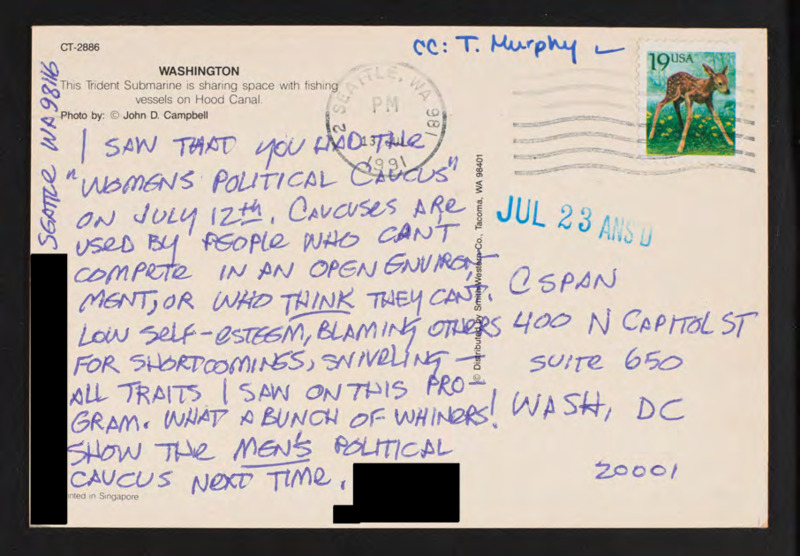 CT-2886
WASHINGTON
This Trident Submarine is sharing space with fishing
vessels on Hood Canal.
Photo by: © John D. Campbell
SEATTLE WA 98116
I SAW THAT YOU HAD THE
"WOMENS POLITICAL CAUCUS"
ON JULY 12th. CAUCUSES ARE
USED BY PEOPLE WHO CAN'T
COMPETE IN AN OPEN ENVIRON-
MENT, OR WHO THINK THEY CAN'T.
LOW SELF-ESTEEM, BLAMING OTHERS
FOR SHORTCOMINGS, SNIVELING —
ALL TRAITS I SAW ON THIS PRO-
GRAM. WHAT A BUNCH OF WHINERS!
SHOW THE MEN'S POLITICAL
CAUCUS NEXT TIME.
nted in Singapore
© Distributed by Smith-Western Co., Tacoma, WA 98401
CC: T. Murphy
SEATTLE, WA 981
PM
13
1991
19 USA
JUL 23 ANS'D
C SPAN
400 N CAPITOL ST
SUITE 650
WASH, DC
20001